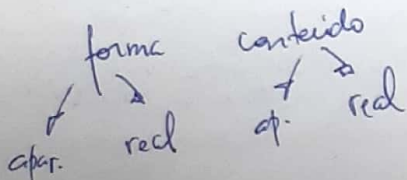 forma conteúdo
apar. real ap. real